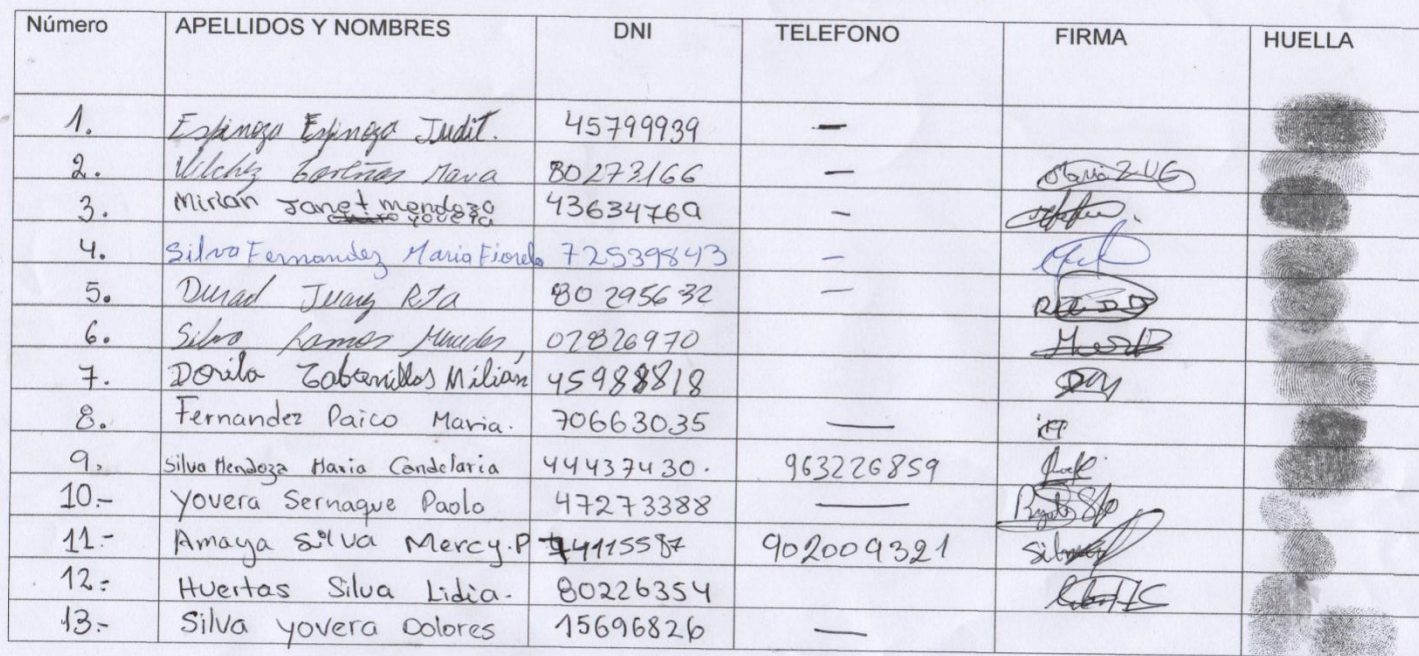 Número APELLIDOS Y NOMBRES DNI TELEFONO FIRMA HUELLA
1. Espinoza Espinoza Judit. 45799939 —
2. Vilchez Maria 80273166 —
3. Mirian Janet mendoza 43634769 —
yovera
4. Silva Fernandez Maria Fiorela 72539843 —
5. Juarez 80295632 —
6. Silva Ramos 02826970
7. Dorila Milian 45988818
8. Fernandez Paico Maria. 70663035 —
9. Silva Mendoza Maria Candelaria 44437430. 963226859
10.- Yovera Sernaque Paolo 47273388 —
11.- Amaya Silva Mercy.P 74115587 902009321
12.- Huertas Silva Lidia. 80226354
13.- Silva yovera Dolores 15696826 —